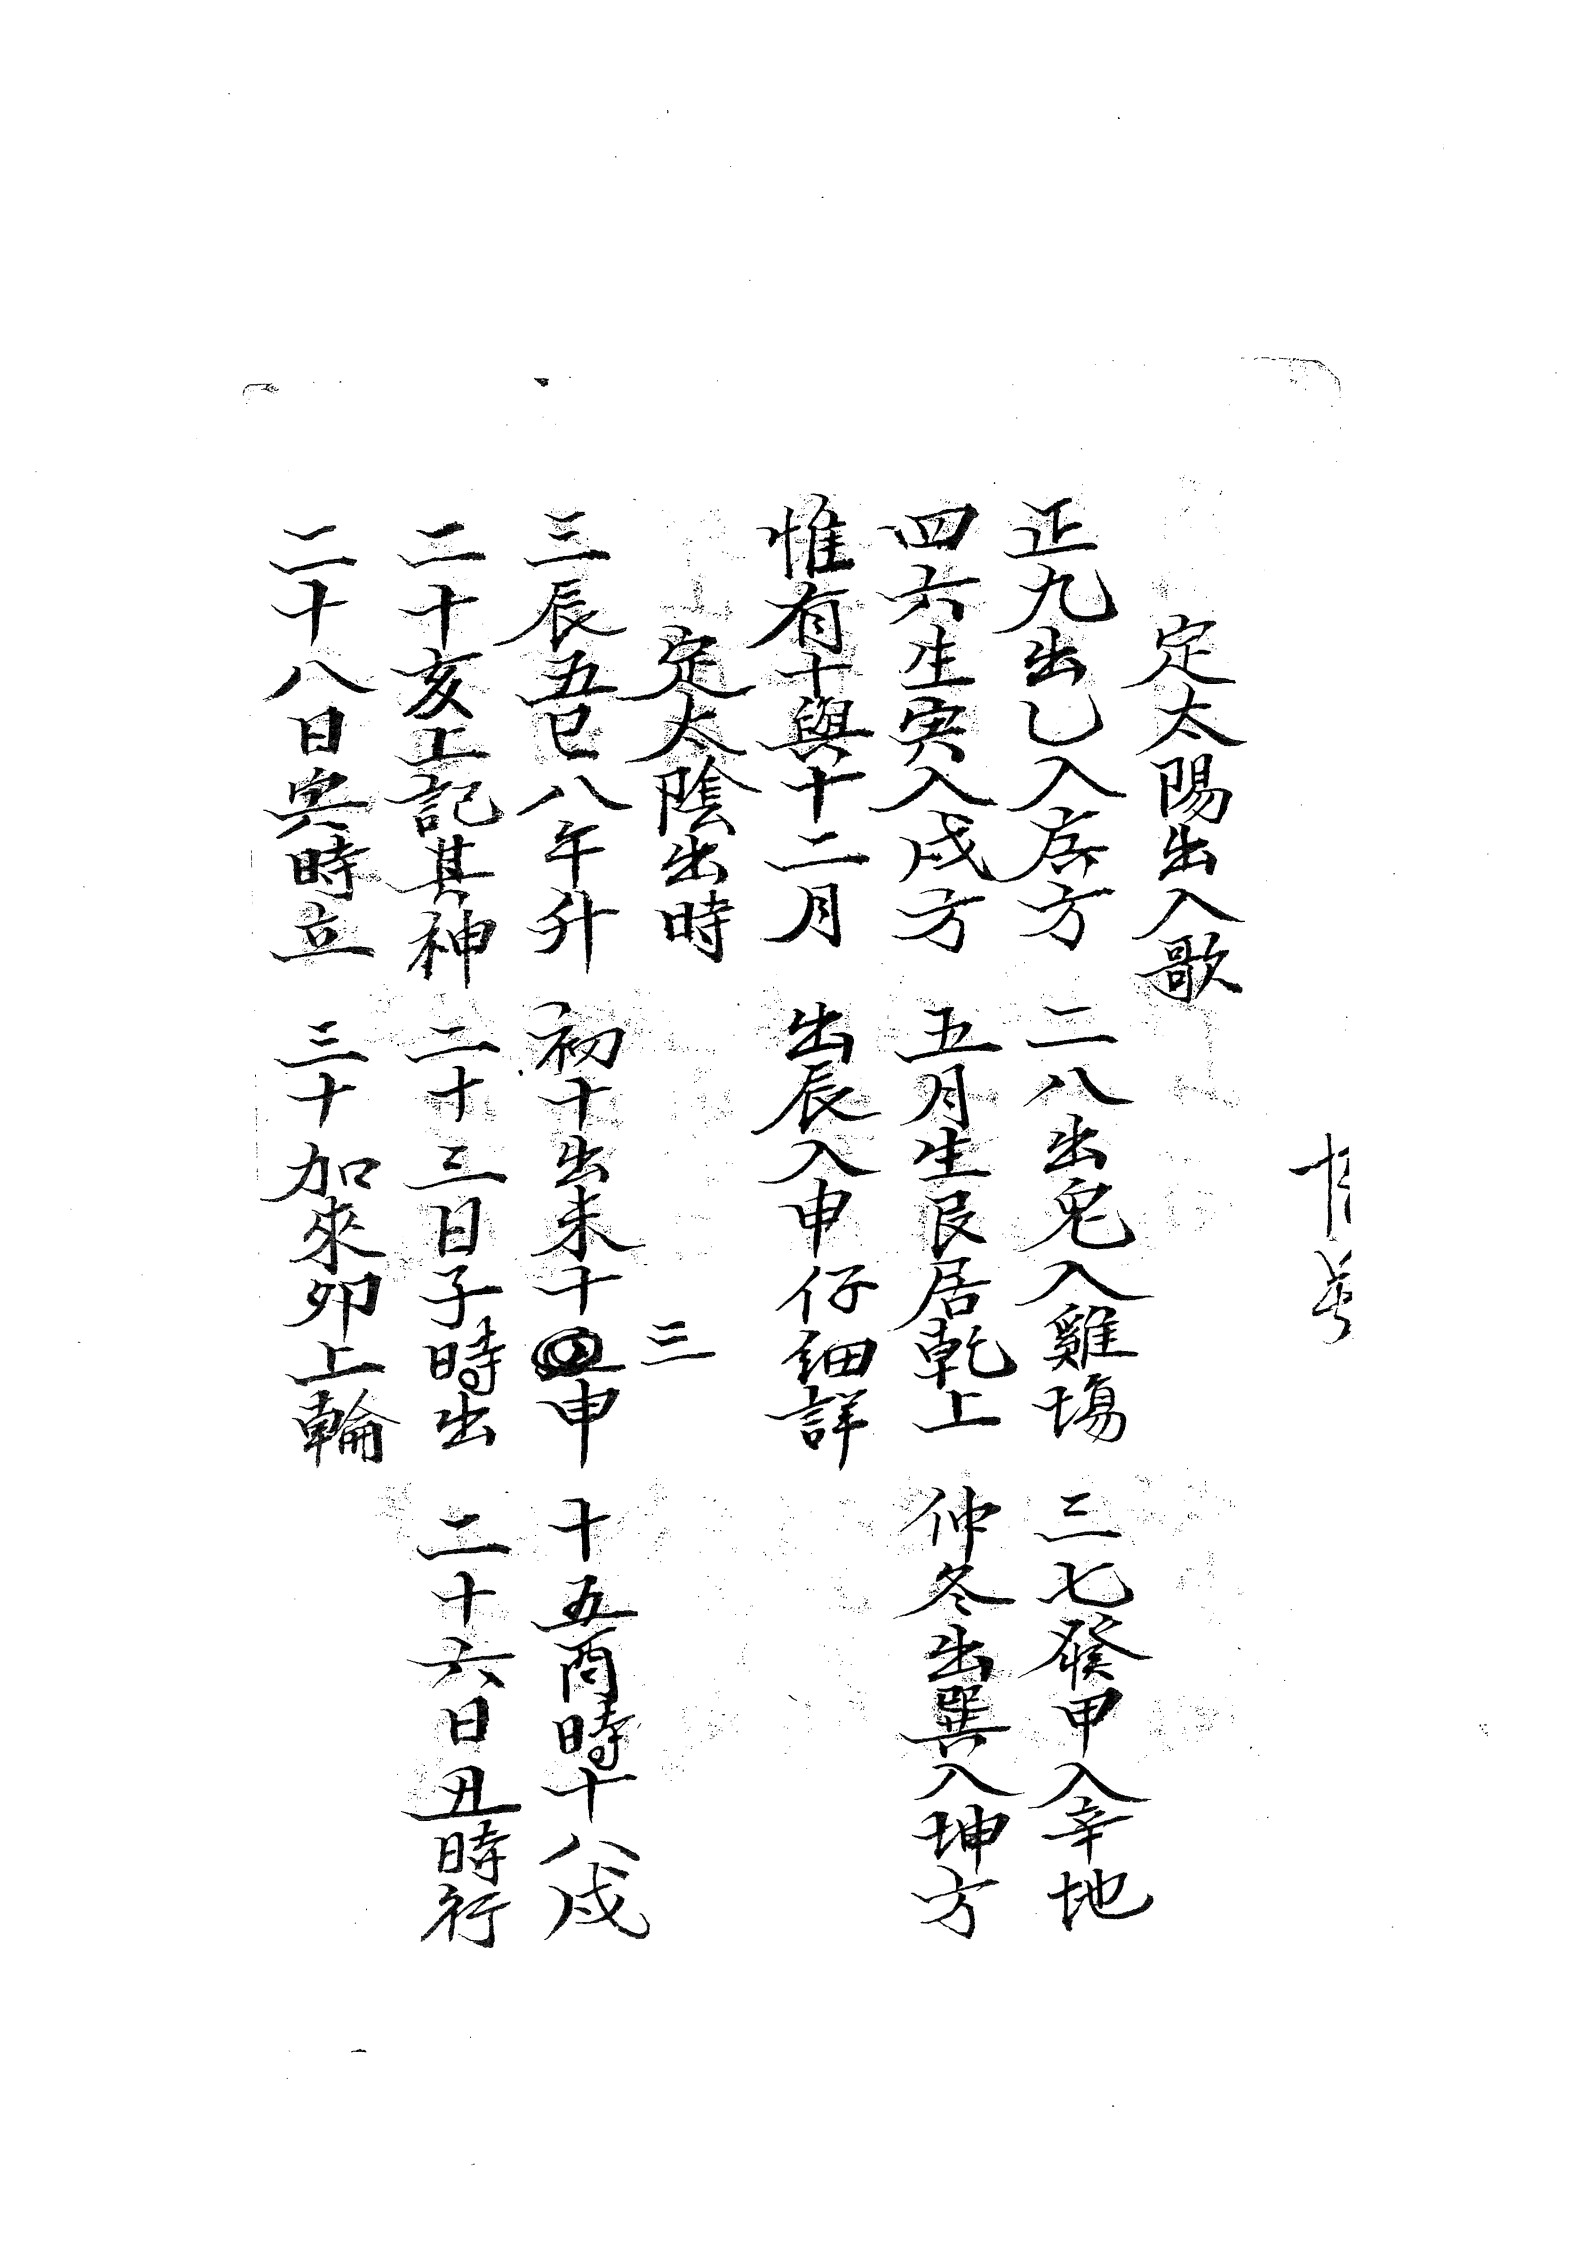 定太陽出入歌
正九出乙入庚方 二八出兔入雞場 三七發甲入辛地
四六生寅入戌方 五月生艮居乾上 仲冬出巽入坤方
惟有十與十二月 出辰入申仔細詳
定太陰出時
三辰五巳八午升 初十出未十三申 十五酉時十八戌
二十亥上記其神 二十三日子時出 二十六日丑時行
二十八日寅時立 三十加來卯上輪